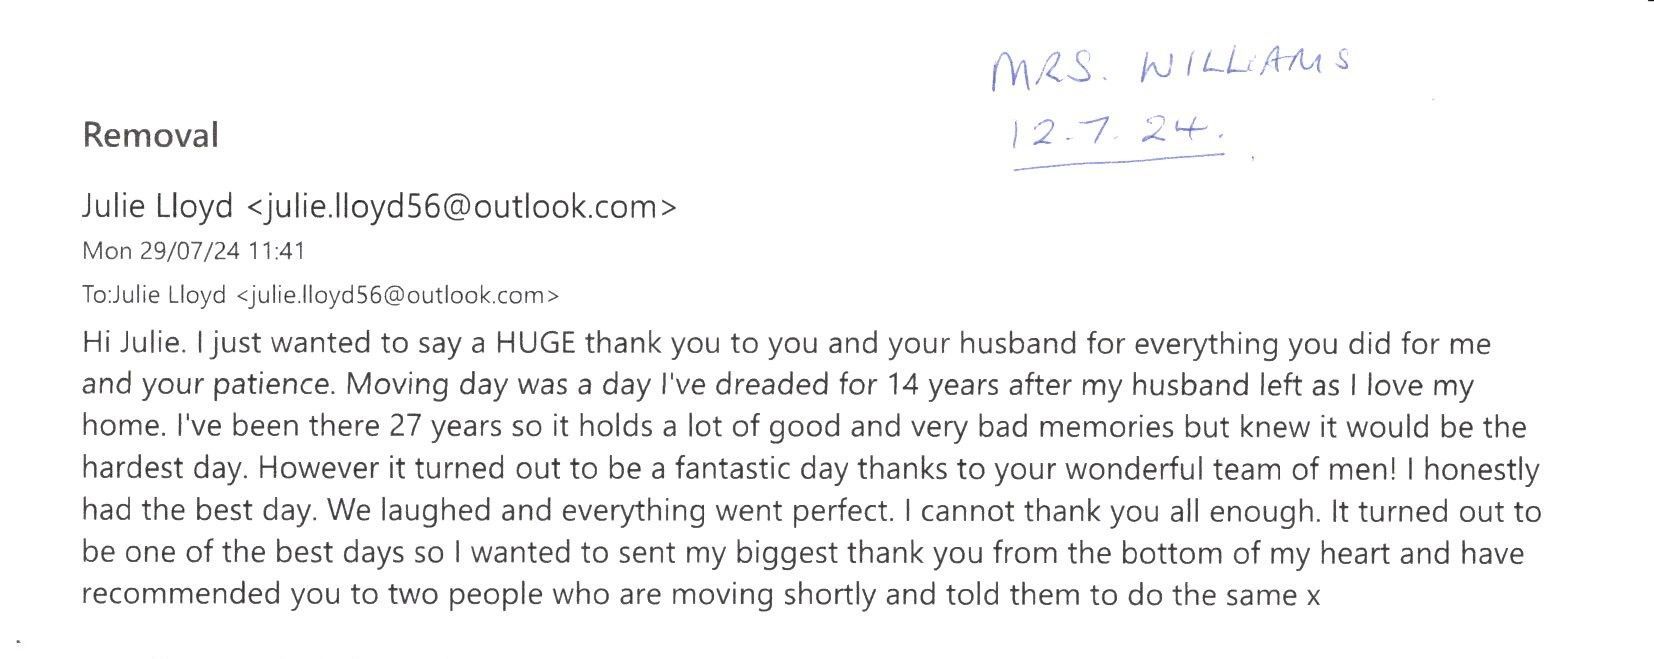 MRS. WILLIAMS
12.7.24.
Removal
Julie Lloyd <julie.lloyd56@outlook.com>
Mon 29/07/24 11:41
To:Julie Lloyd <julie.lloyd56@outlook.com>
Hi Julie. I just wanted to say a HUGE thank you to you and your husband for everything you did for me
and your patience. Moving day was a day I've dreaded for 14 years after my husband left as I love my
home. I've been there 27 years so it holds a lot of good and very bad memories but knew it would be the
hardest day. However it turned out to be a fantastic day thanks to your wonderful team of men! I honestly
had the best day. We laughed and everything went perfect. I cannot thank you all enough. It turned out to
be one of the best days so I wanted to sent my biggest thank you from the bottom of my heart and have
recommended you to two people who are moving shortly and told them to do the same x